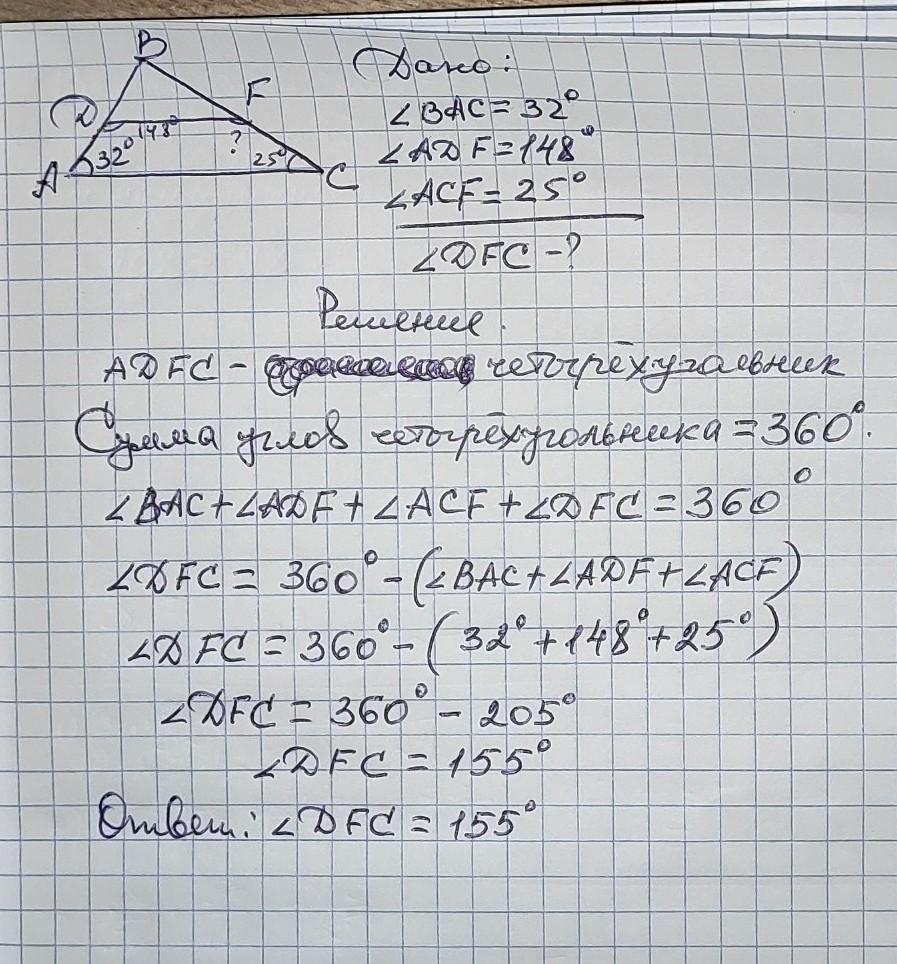 B
Дано:
F
D
∠BAC = 32°
148°
∠ADF = 148°
32°
?
25°
A
C
∠ACF = 25°
∠DFC - ?
Решение.
ADFC - четырёхугольник
Сумма углов четырёхугольника = 360°.
∠BAC + ∠ADF + ∠ACF + ∠DFC = 360°
∠DFC = 360° - (∠BAC + ∠ADF + ∠ACF)
∠DFC = 360° - (32° + 148° + 25°)
∠DFC = 360° - 205°
∠DFC = 155°
Ответ: ∠DFC = 155°